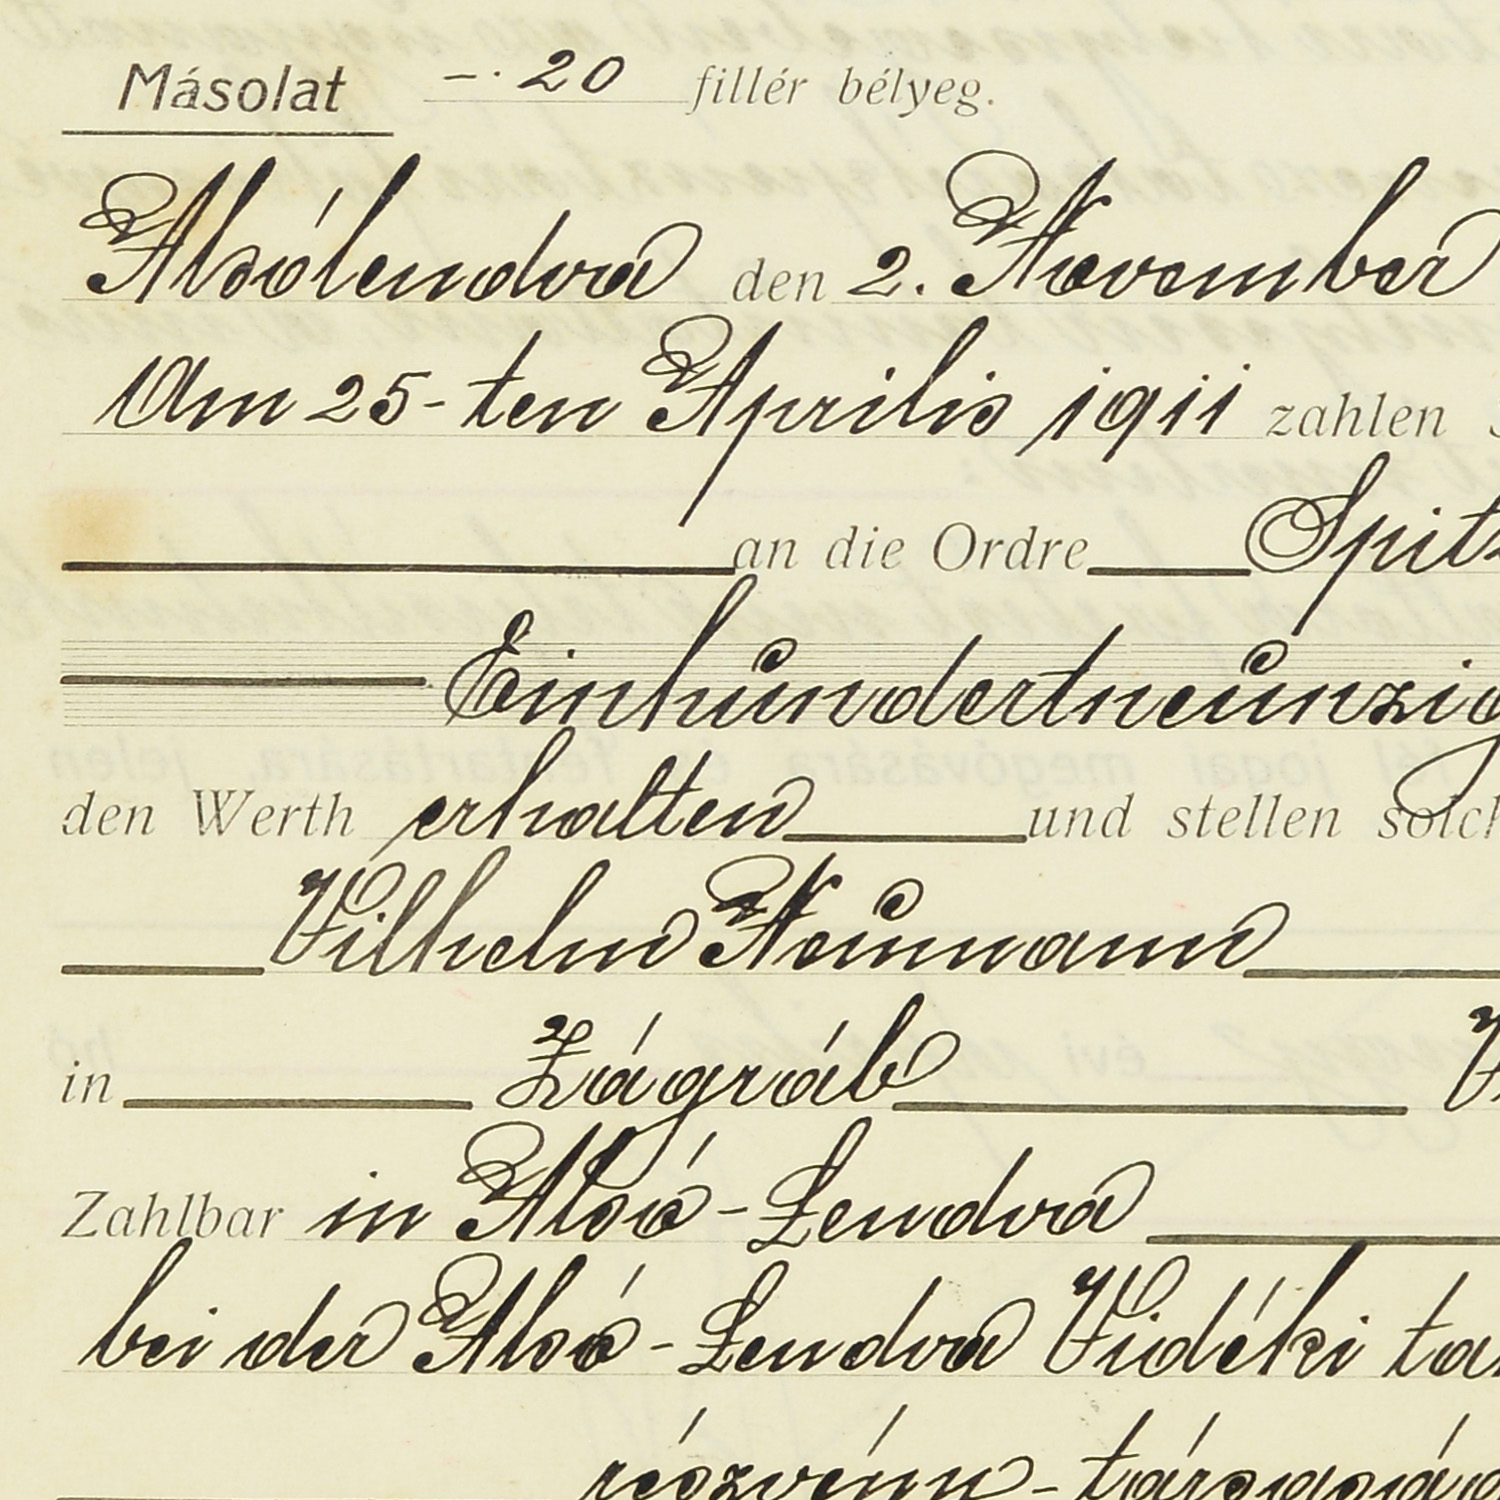 Másolat –·20 fillér bélyeg.
Alsólendva den 2. November
Am 25-ten Aprilis 1911 zahlen
an die Ordre Spitz
Einhundertneunzig
den Werth erhalten und stellen solch
Vilhelm Neumann
in Zágráb
Zahlbar in Alsó-Lendva
bei der Alsó-Lendva Vidéki ta
részvény-társaság